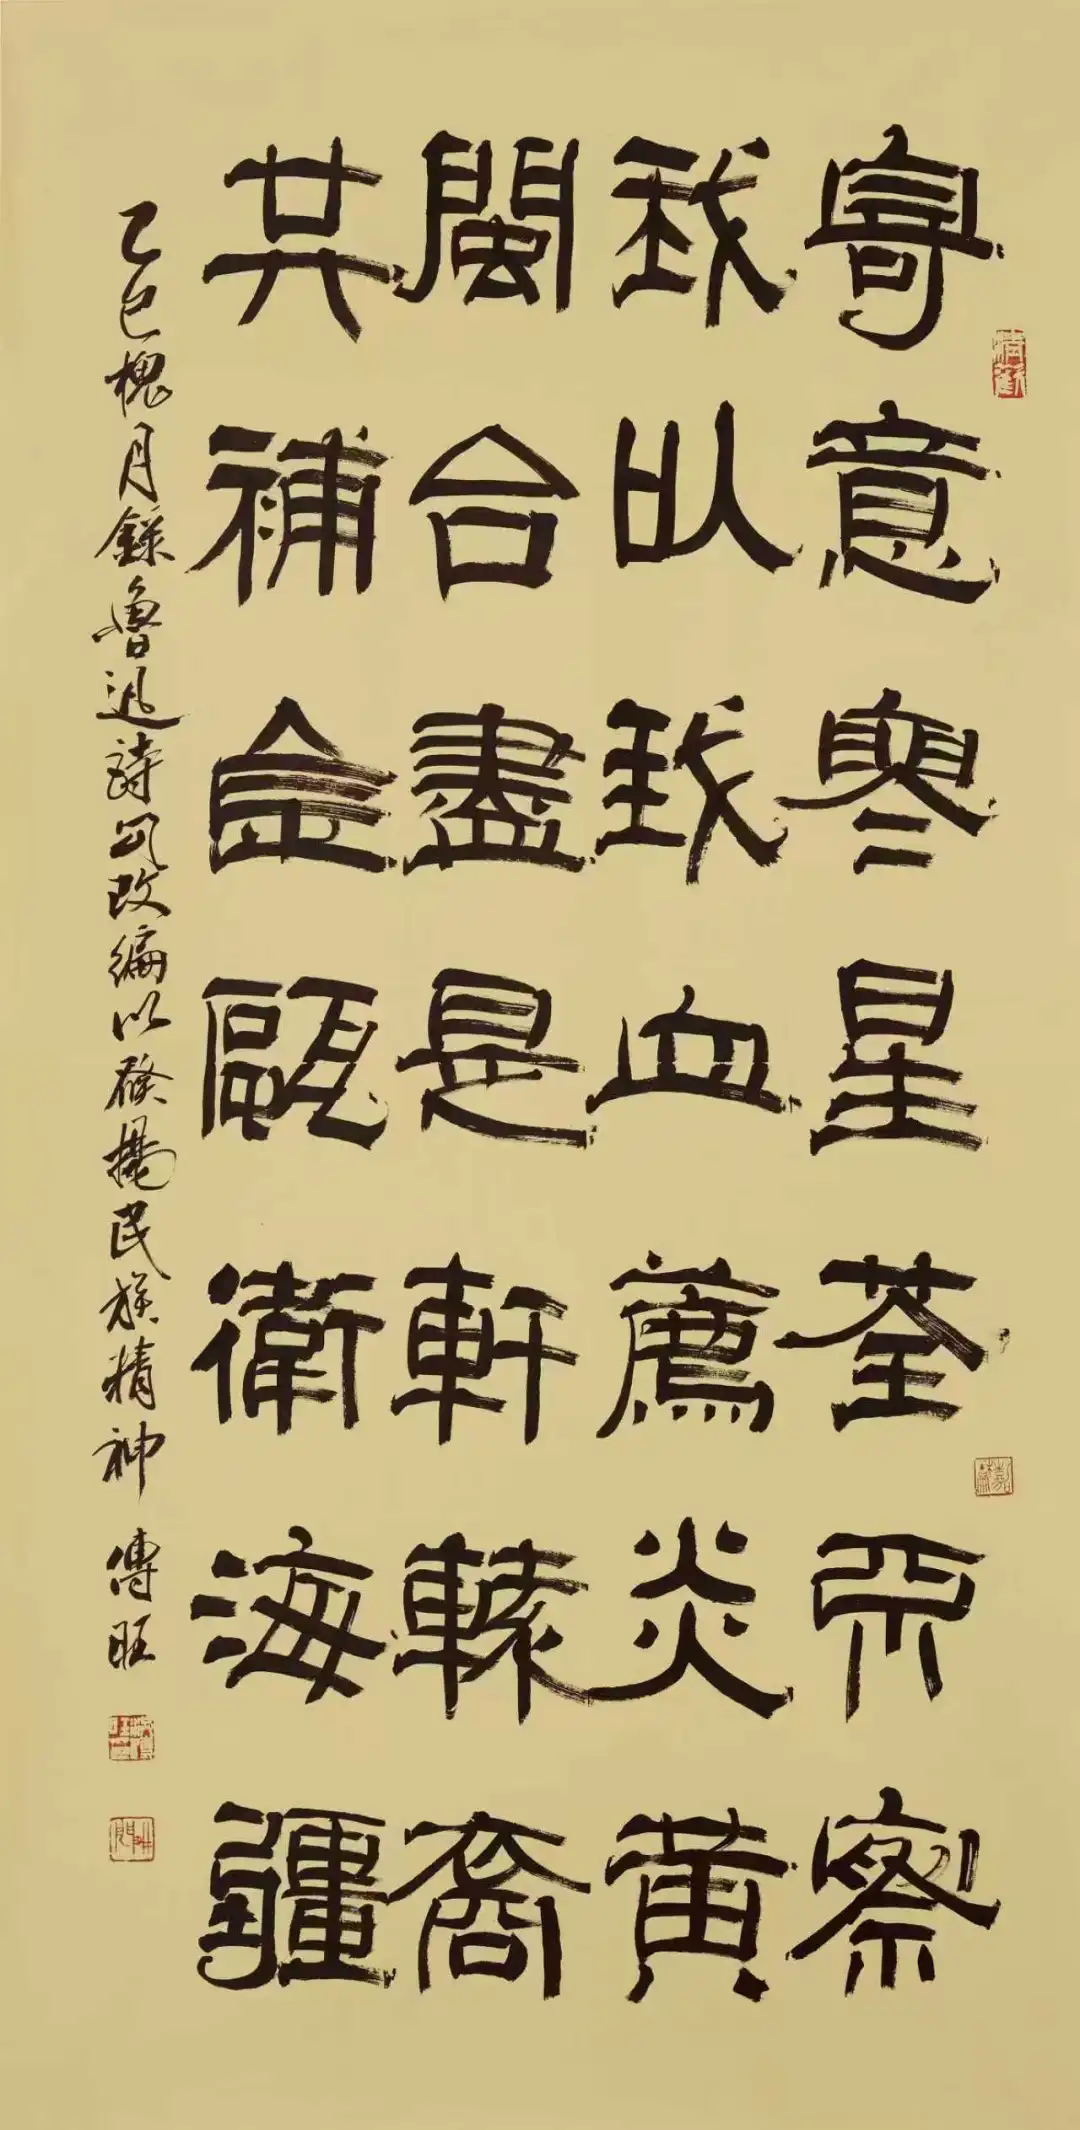 寄意寒星荃不察
我以我血薦炎黃
閩台盡是軒轅裔
共補金甌衛海疆
乙巳槐月錄魯迅詩句改編以發揚民族精神 傳旺